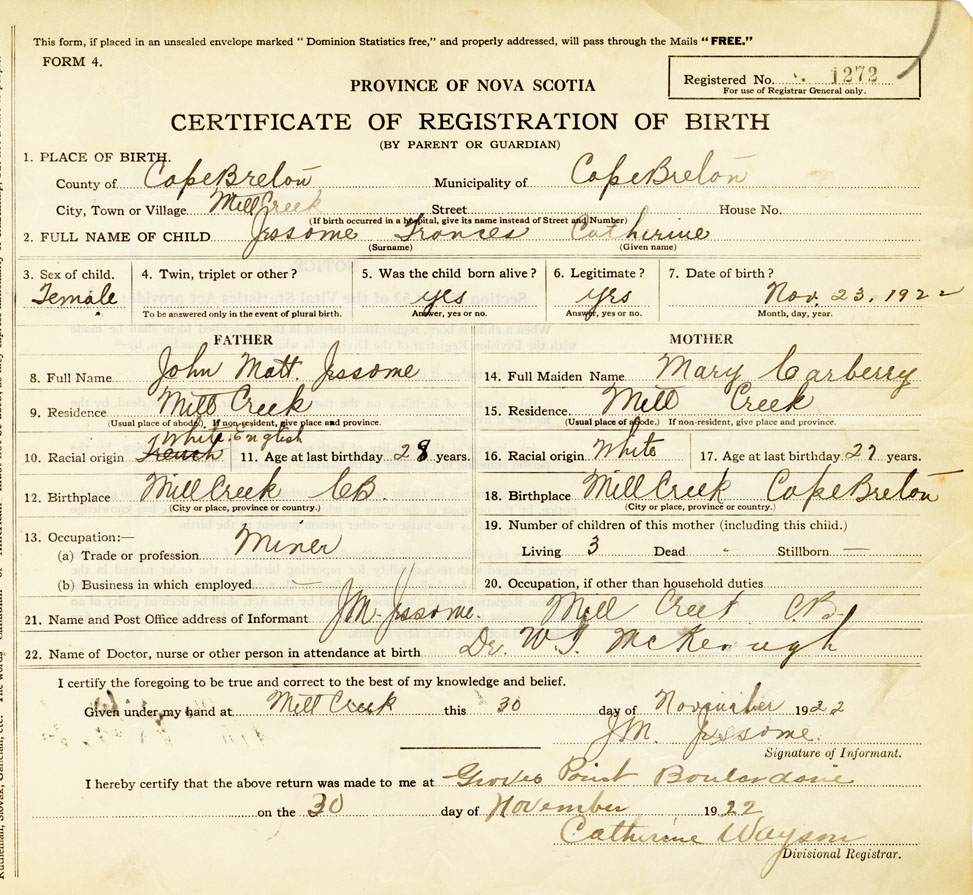 This form, if placed in an unsealed envelope marked "Dominion Statistics free," and properly addressed, will pass through the Mails "FREE."
FORM 4.
Registered No. 1272
For use of Registrar General only.
PROVINCE OF NOVA SCOTIA
CERTIFICATE OF REGISTRATION OF BIRTH
(BY PARENT OR GUARDIAN)
1. PLACE OF BIRTH.
County of Cape Breton Municipality of Cape Breton
City, Town or Village Mill Creek Street House No.
(If birth occurred in a hospital, give its name instead of Street and Number)
2. FULL NAME OF CHILD Jessome Frances Catherine
(Surname) (Given name)
3. Sex of child. 4. Twin, triplet or other? 5. Was the child born alive? 6. Legitimate? 7. Date of birth?
Female yes yes Nov. 23, 1922
To be answered only in the event of plural birth. Answer, yes or no. Answer, yes or no. Month, day, year.
FATHER MOTHER
8. Full Name John Matt. Jessome 14. Full Maiden Name Mary Carberry
9. Residence Mill Creek 15. Residence Mill Creek
(Usual place of abode.) If non-resident, give place and province. (Usual place of abode.) If non-resident, give place and province.
White. English
10. Racial origin French 11. Age at last birthday 28 years. 16. Racial origin White 17. Age at last birthday 27 years.
12. Birthplace Mill Creek CB. 18. Birthplace Mill Creek Cape Breton
(City or place, province or country.) (City or place, province or country.)
13. Occupation:— 19. Number of children of this mother (including this child.)
(a) Trade or profession Miner Living 3 Dead - Stillborn —
(b) Business in which employed — 20. Occupation, if other than household duties
21. Name and Post Office address of Informant J M Jessome. Mill Creek C.B.
22. Name of Doctor, nurse or other person in attendance at birth Dr. McKeough
I certify the foregoing to be true and correct to the best of my knowledge and belief.
Given under my hand at Mill Creek this 30 day of November 1922
J M. Jessome.
Signature of Informant.
I hereby certify that the above return was made to me at Groves Point Boulardarie
on the 30 day of November 1922
Catherine Wayson
Divisional Registrar.